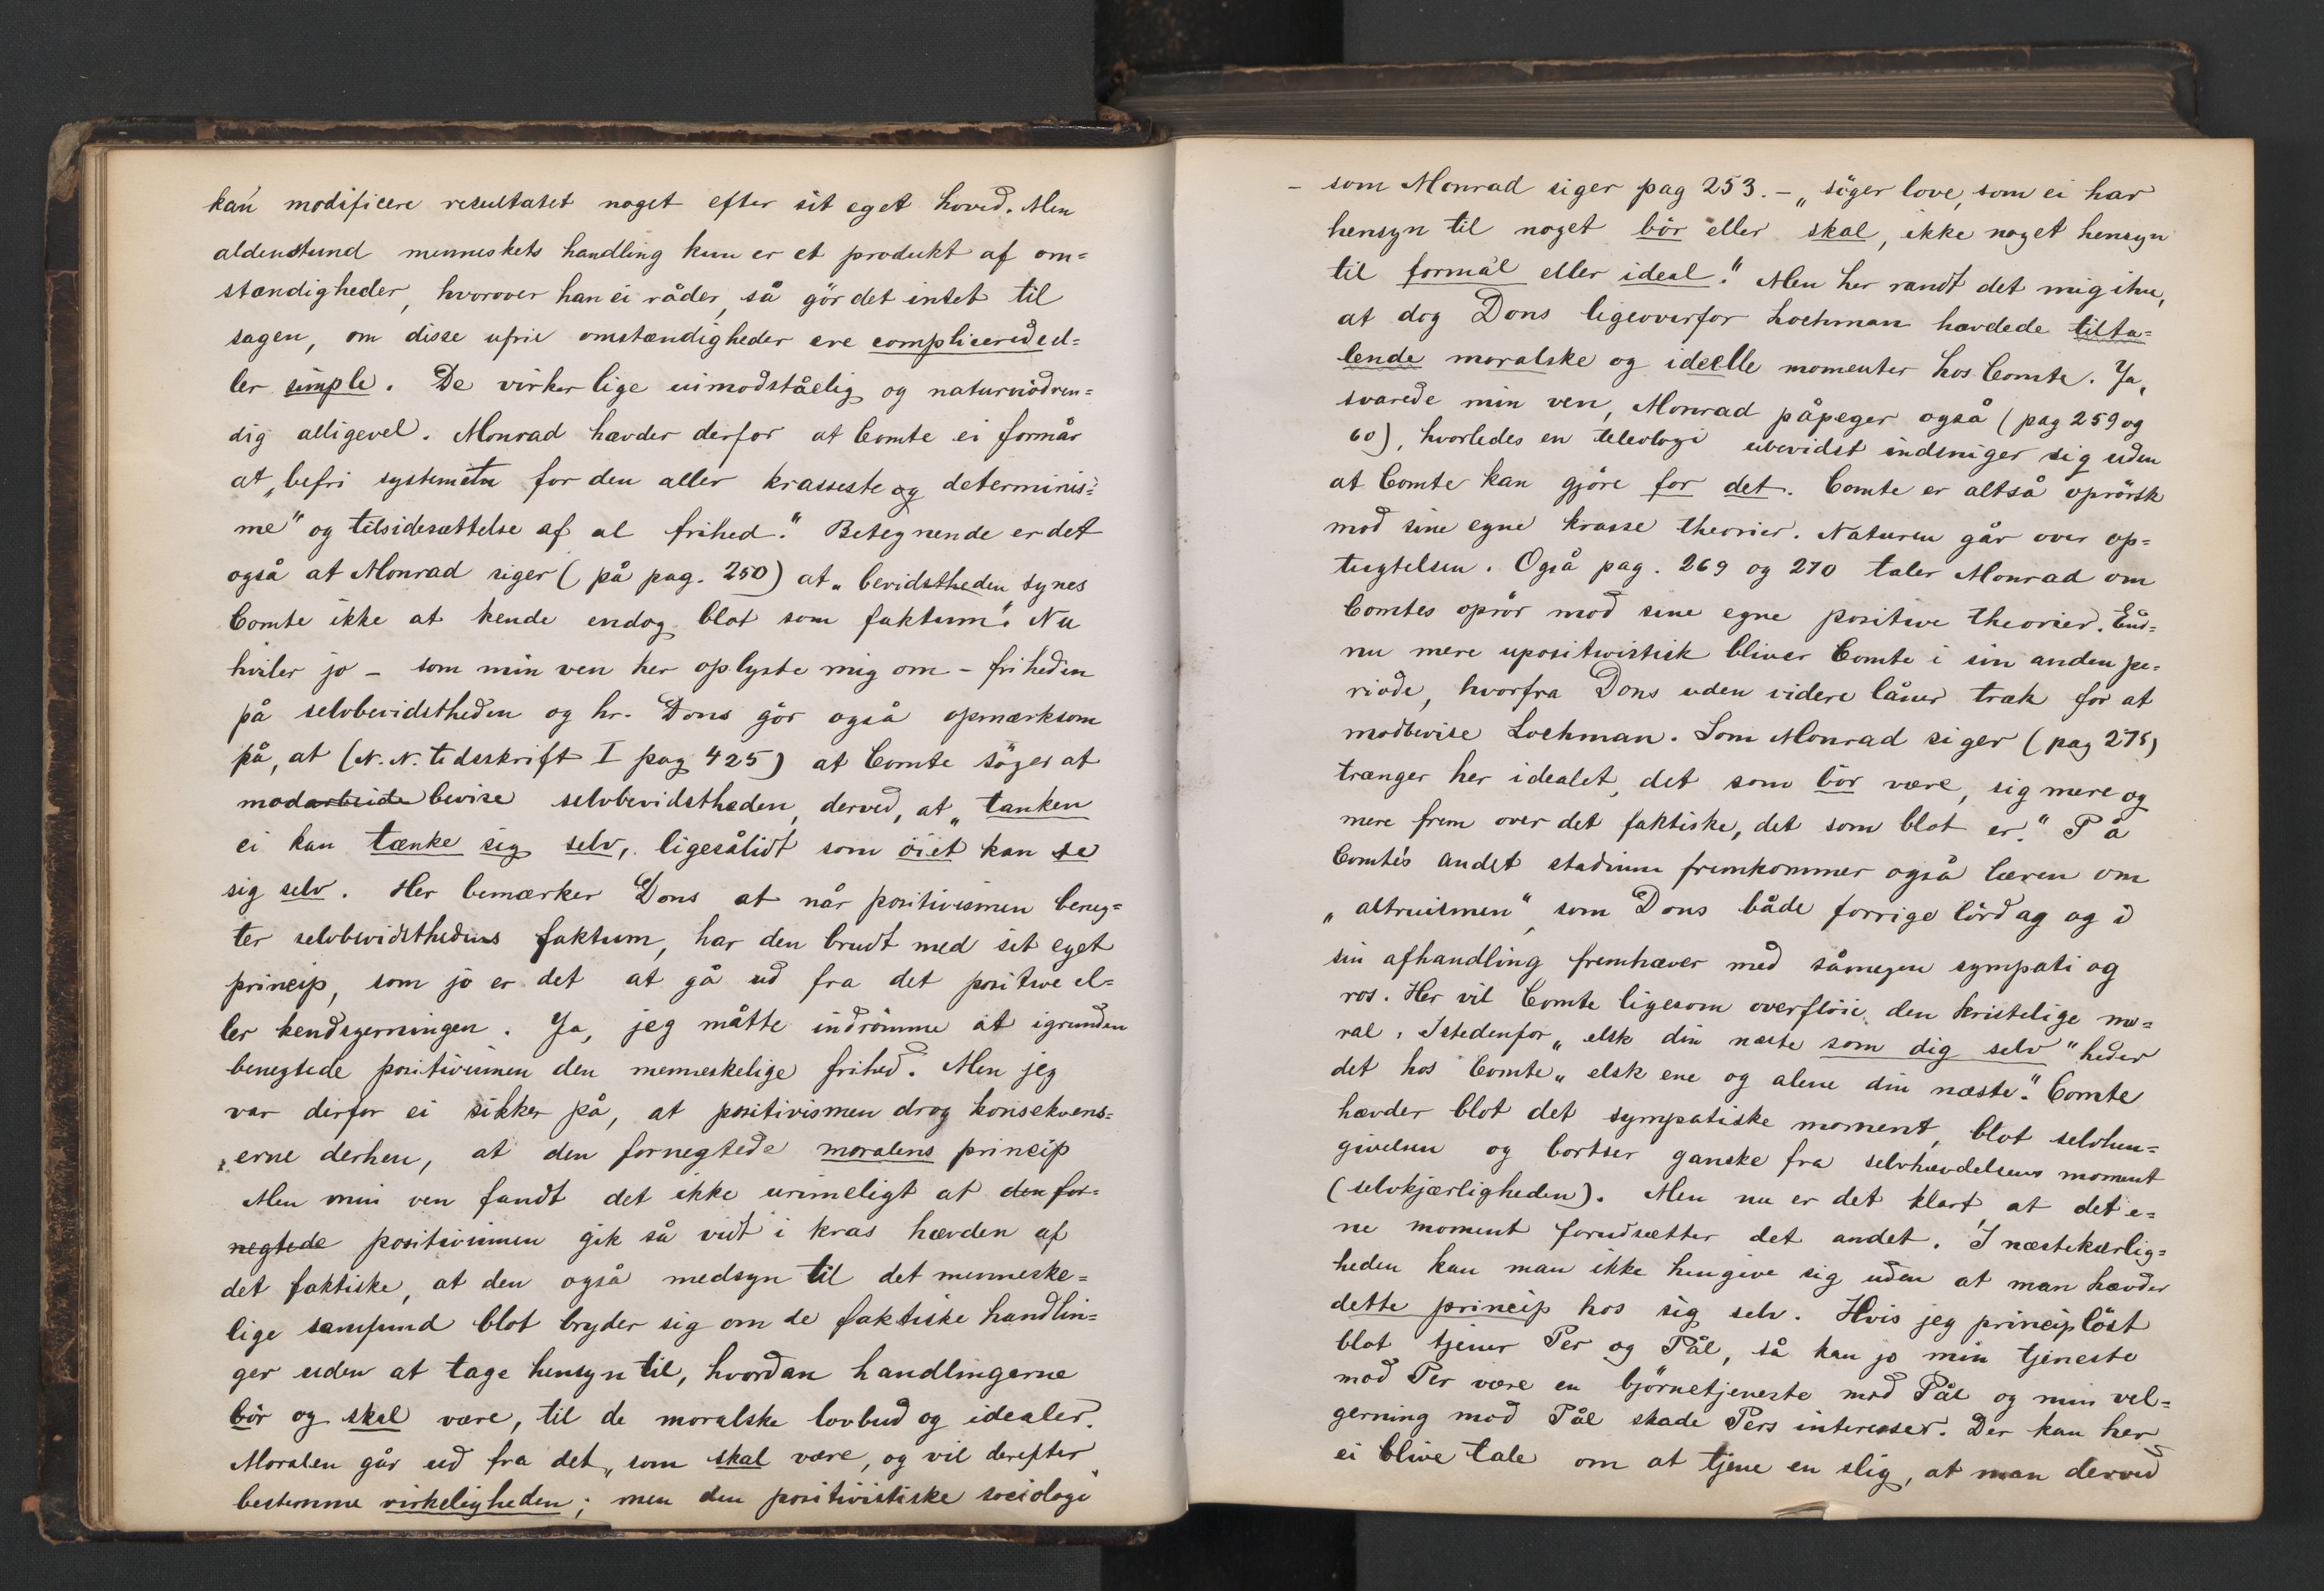 kan modificere resultatet noget efter sit eget hoved. Men
aldenstund menneskets handling kun er et produkt af om=
stændigheder, hvorover han ei råder, så gör det intet til
sagen, om disse ufrie omstændigheder ere complicerede el=
ler simple. De virker lige uimodståelig og naturnödven=
dig alligevel. Monrad hævder derfor at Comte ei formår
at „befri systemet for den aller krasseste og determinis=
me" og tilsidesættelse af al frihed." Betegnende er det
også at Monrad siger (på pag. 250) at „bevidstheden synes
Comte ikke at kende endog blot som faktum". Nu
hviler jo – som min ven her oplyste mig om – friheden
på selvbevidstheden og hr. Dons gör også opmærksom
på, at (N. N. Tidsskrift I pag 425) at Comte söger at
modarbeide bevise selvbevidstheden, derved, at „tanken
ei kan tænke sig selv, ligesålidt som öiet kan se
sig selv. Her bemærker Dons at når positivismen beneg=
ter selvbevidsthedens faktum, har den brudt med sit eget
princip, som jo er det at gå ud fra det positive el=
ler kendsgerningen. Ja, jeg måtte indrömme at igrunden
benegtede positivismen den menneskelige frihed. Men jeg
var derfor ei sikker på, at positivismen drog konsekvens=
erne derhen, at den fornegtede moralens princip
Men min ven fandt det ikke urimeligt at den for=
negtede positivismen gik så vidt i kras hævden af
det faktiske, at den også medsyn til det menneske=
lige samfund blot bryder sig om de faktiske handlin=
ger uden at tage hensyn til, hvordan handlingerne
bör og skal være, til de moralske lovbud og idealer.
Moralen går ud fra det, som skal være, og vil derefter
bestemme virkeligheden; men den positivistiske sociologi"
– som Monrad siger pag 253. – „söger love, som ei har
hensyn til noget bör eller skal, ikke noget hensyn
til formål eller ideal." Men her randt det mig ihu,
at dog Dons ligeoverfor Lochman hævdede tilta=
lende moralske og ideelle momenter hos Comte. Ja,
svarede min ven, Monrad påpeger også (pag 259 og
60), hvorledes en teleologi ubevidst indsniger sig uden
at Comte kan gjöre for det. Comte er altså oprörsk
mod sine egne krasse theorier. Naturen går over op=
tugtelsen. Også pag. 269 og 270 taler Monrad om
Comtes oprör mod sine egne positive theorier. End=
nu mere upositivistisk bliver Comte i sin anden pe=
riode, hvorfra Dons uden videre låner træk for at
modbevise Lochman. Som Monrad siger (pag 275)
trænger her idealet, det som bör være, sig mere og
mere frem over det faktiske, det som blot er." På
Comtes andet stadium fremkommer også læren om
„altruismen", som Dons både forrige lördag og i
sin afhandling fremhæver med såmegen sympati og
ros. Her vil Comte ligesom overflöie den kristelige mo=
ral. Istedenfor „elsk din næste som dig selv" heder
det hos Comte „elsk ene og alene din næste". Comte
hævder blot det sympatiske moment, blot selvhen=
givelsen og bortser ganske fra selvhævdelsens moment
(selvkjærligheden). Men nu er det klart, at det e=
ne moment forudsætter det andet. I næstekærlig=
heden kan man ikke hengive sig uden at man hævder
dette princip hos sig selv. Hvis jeg principlöst
blot tjener Per og Pål, så kan jo min tjeneste
mod Per være en björnetjeneste mod Pål og min vel=
gerning mod Pål skade Pers interesser. Der kan her
ei blive tale om at tjene en slig, at man derved